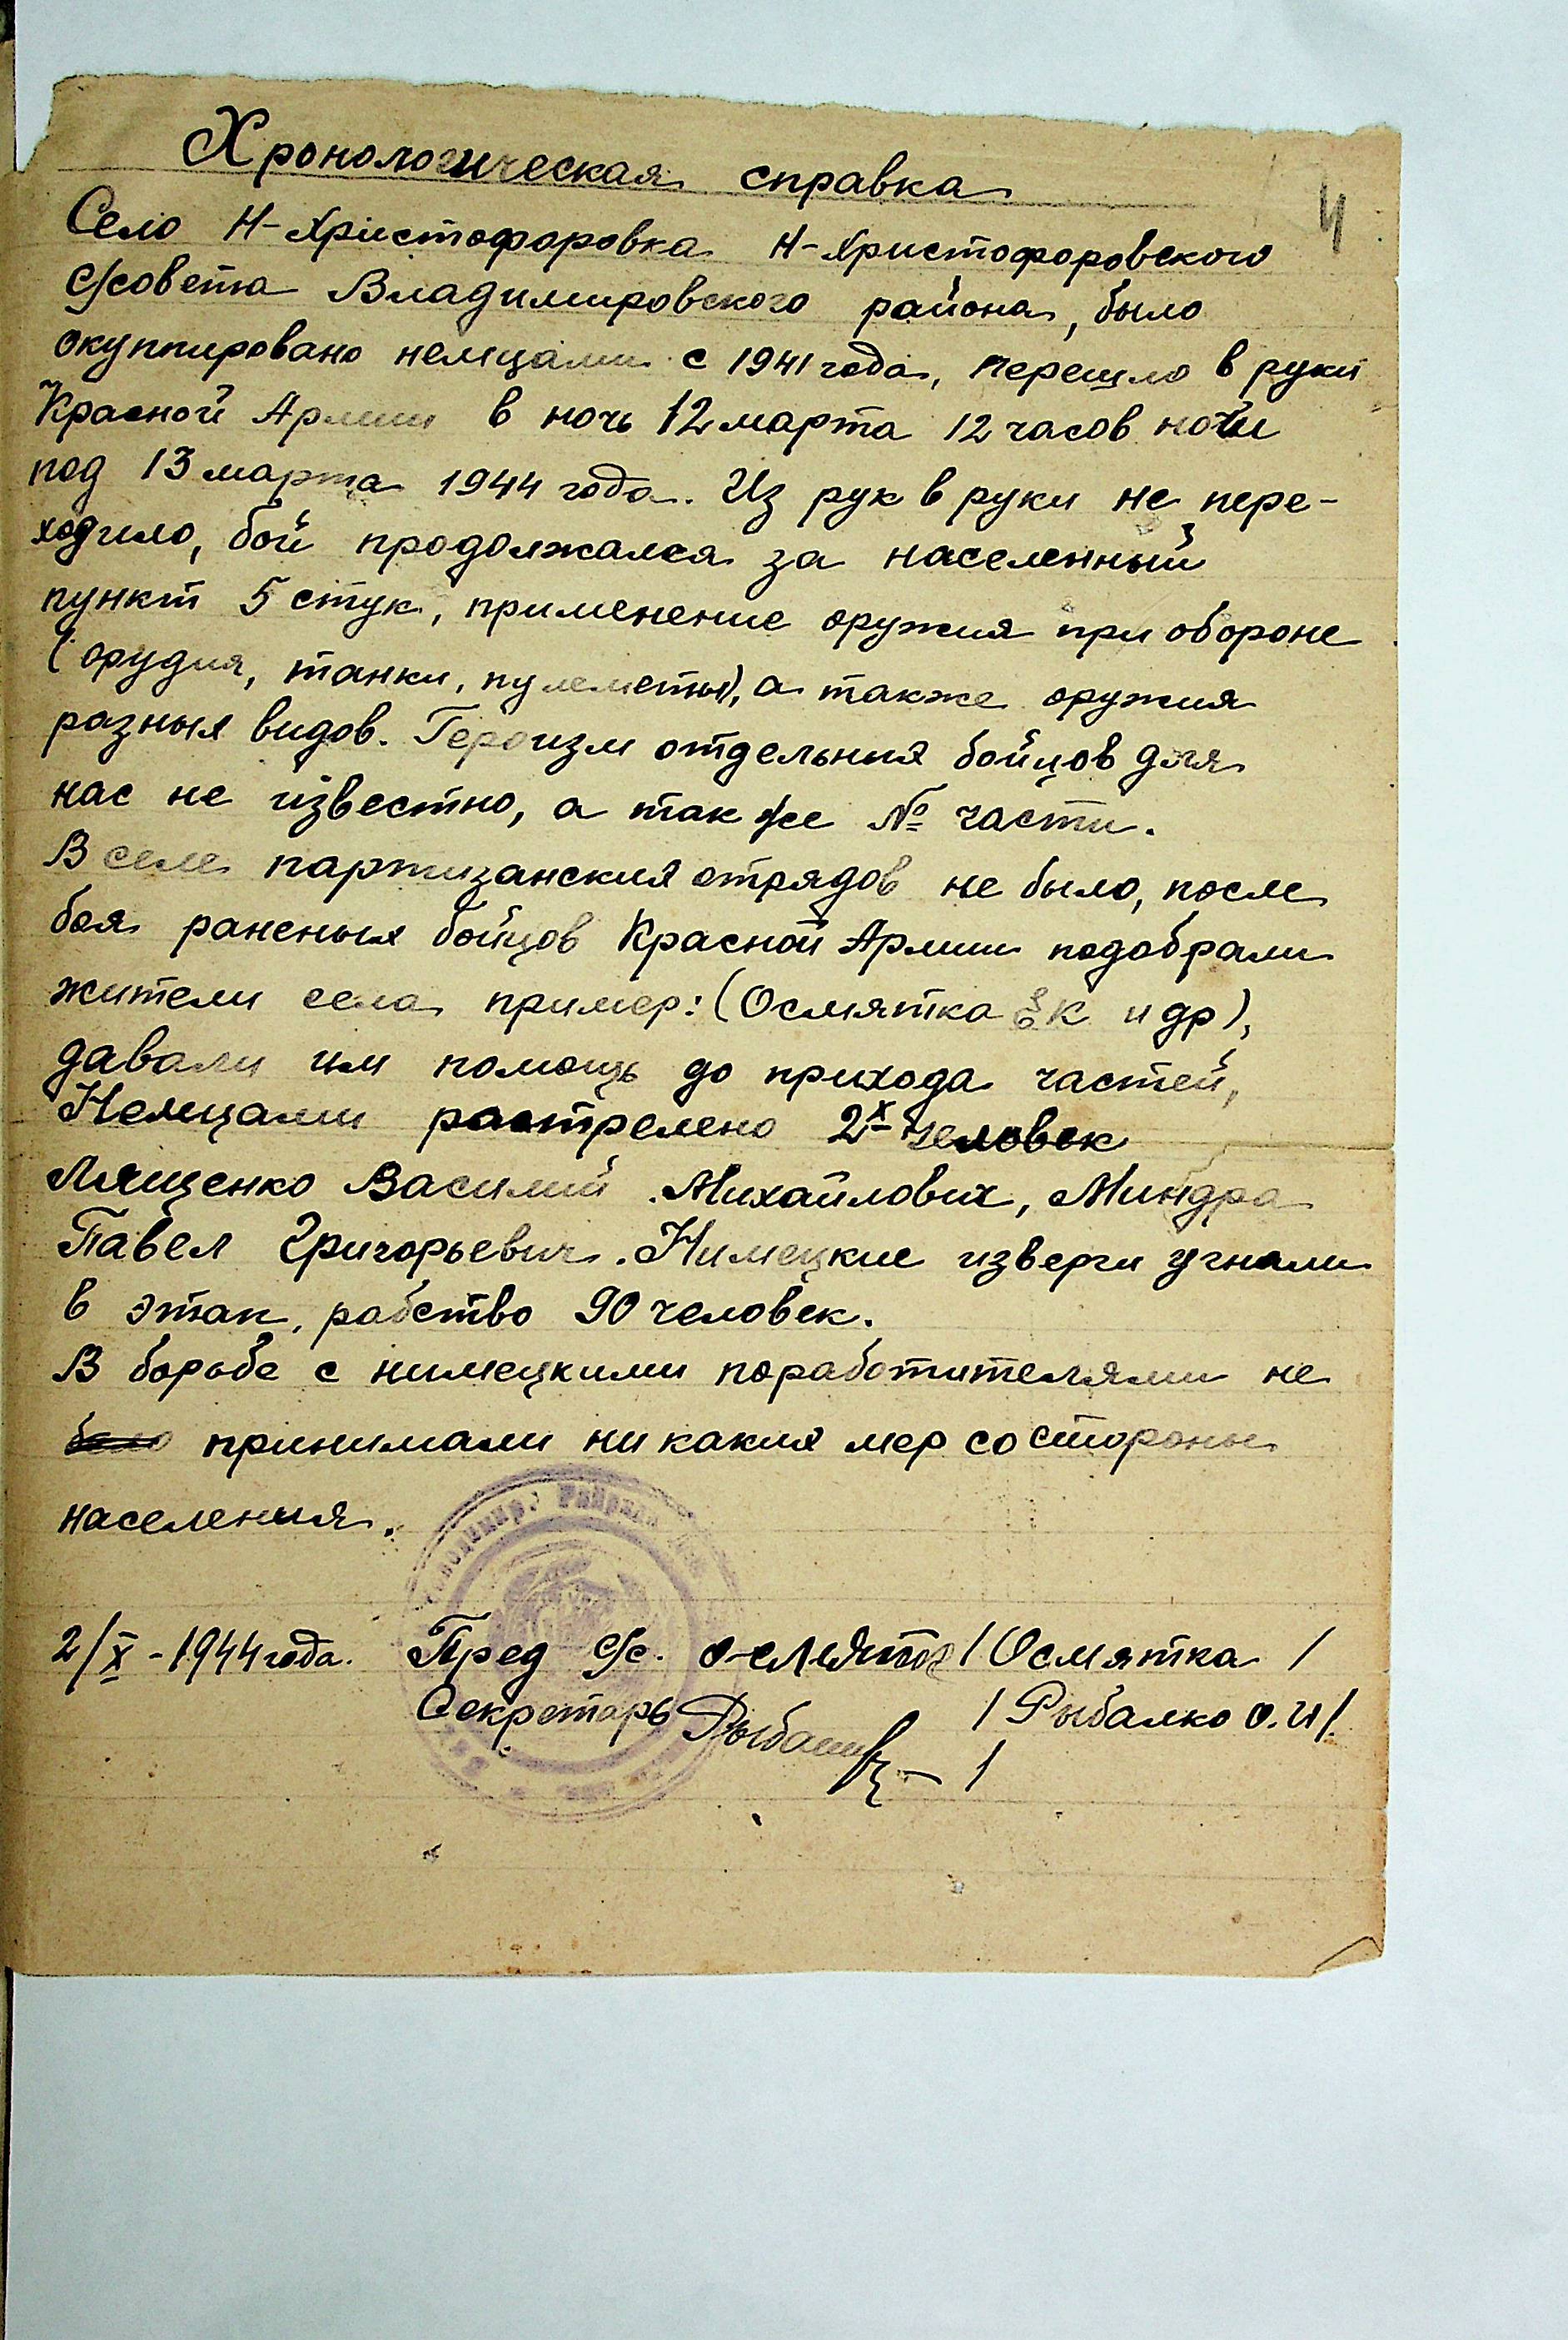 Хронологическая справка
4
Село Н-Христофоровка Н-Христофоровского
с/совета Владимировского района, было
окуппировано немцами с 1941 года, перешло в руки
Красной Армии в ночь 12 марта 12 часов ночи
под 13 марта 1944 года. Из рук в руки не пере-
ходило, бой продолжался за населенный
пункт 5 стук, применение оружия при обороне
(орудия, танки, пулеметы), а также оружия
разных видов. Героизм отдельных бойцов для
нас не известно, а так же № части.
В селе партизанских отрядов не было, после
боя раненых бойцов Красной Армии подобрали
жители села пример: (Осмятка Е К и др),
давали им помощь до прихода частей,
Немцами растрелено 2х человек
Лященко Василий Михайлович, Миндра
Павел Григорьевич. Нимецкие изверги угнали
в этап, рабство 90 человек.
В борьбе с нимецкими поработителями не
было принимали ни каких мер со стороны
населения.
2/X - 1944 года. Пред с/с. Осмятка /Осмятка/
Секретарь /Рыбалко О.И/.